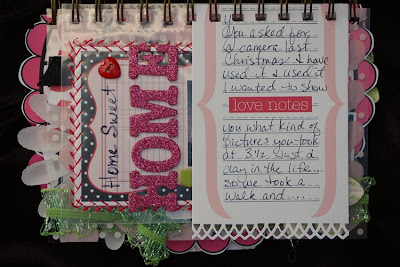 Home Sweet
HOME
You asked for
a camera last
Christmas I have
used it & used it
I wanted to show
love notes
you what kind of
pictures you took
at 3 1/2 just a
day in the life...
so we took a
walk and ....